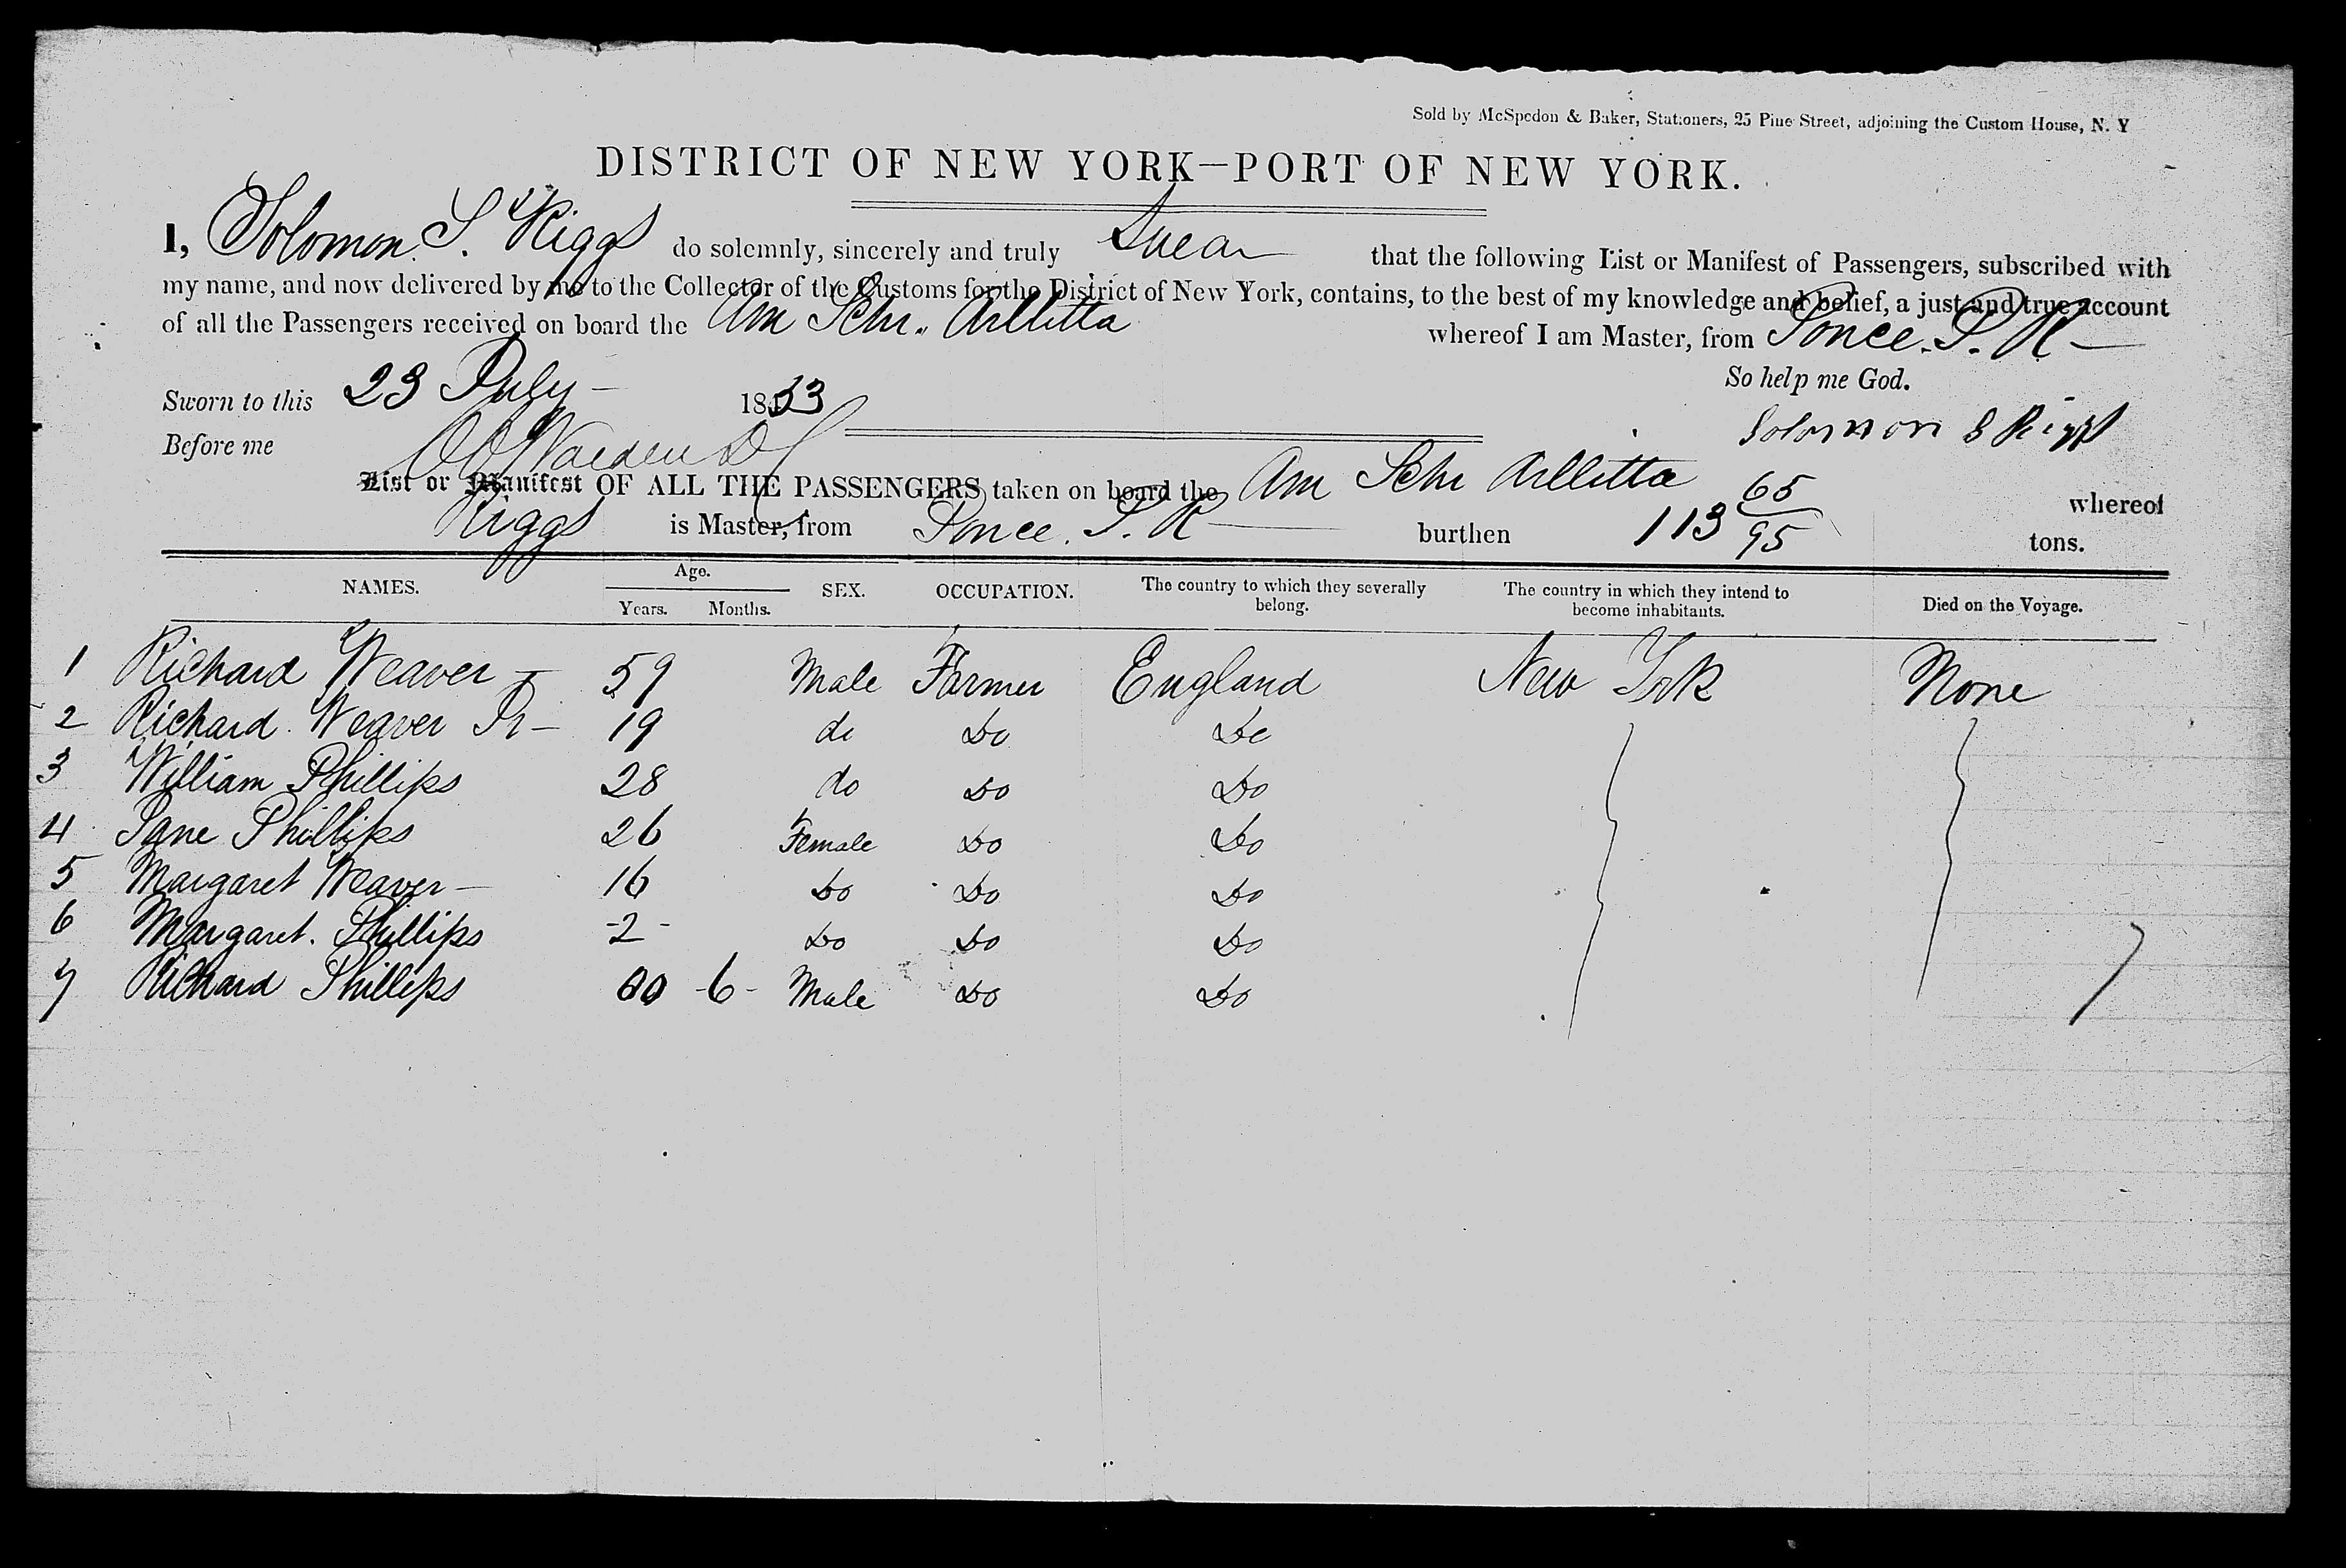 Sold by McSpedon & Baker, Stationers, 25 Pine Street, adjoining the Custom House, N. Y
DISTRICT OF NEW YORK—PORT OF NEW YORK.
I, Solomon S. Riggs do solemnly, sincerely and truly Swear that the following List or Manifest of Passengers, subscribed with
my name, and now delivered by me to the Collector of the Customs for the District of New York, contains, to the best of my knowledge and belief, a just and true account
of all the Passengers received on board the Am Schr. Arllitta whereof I am Master, from Ponce. P. R—
So help me God.
Sworn to this 23 July— 1853
Solomon S Riggs
Before me
List or Manifest OF ALL THE PASSENGERS taken on board the Am Schr Arllitta whereof
Riggs is Master, from Ponce. P. R burthen 113 65/95 tons.
NAMES. Age. Years. Months. SEX. OCCUPATION. The country to which they severally belong. The country in which they intend to become inhabitants. Died on the Voyage.
1 Richard Weaver — 59 Male Farmer England New York None
2 Richard. Weaver Jr— 19 do Do Do
3 William Phillips 28 do Do Do
4 Jane Phillips 26 Female Do Do
5 Margaret Weaver— 16 Do Do Do
6 Margaret. Phillips -2- Do Do Do
7 Richard Phillips 00 -6- Male Do Do